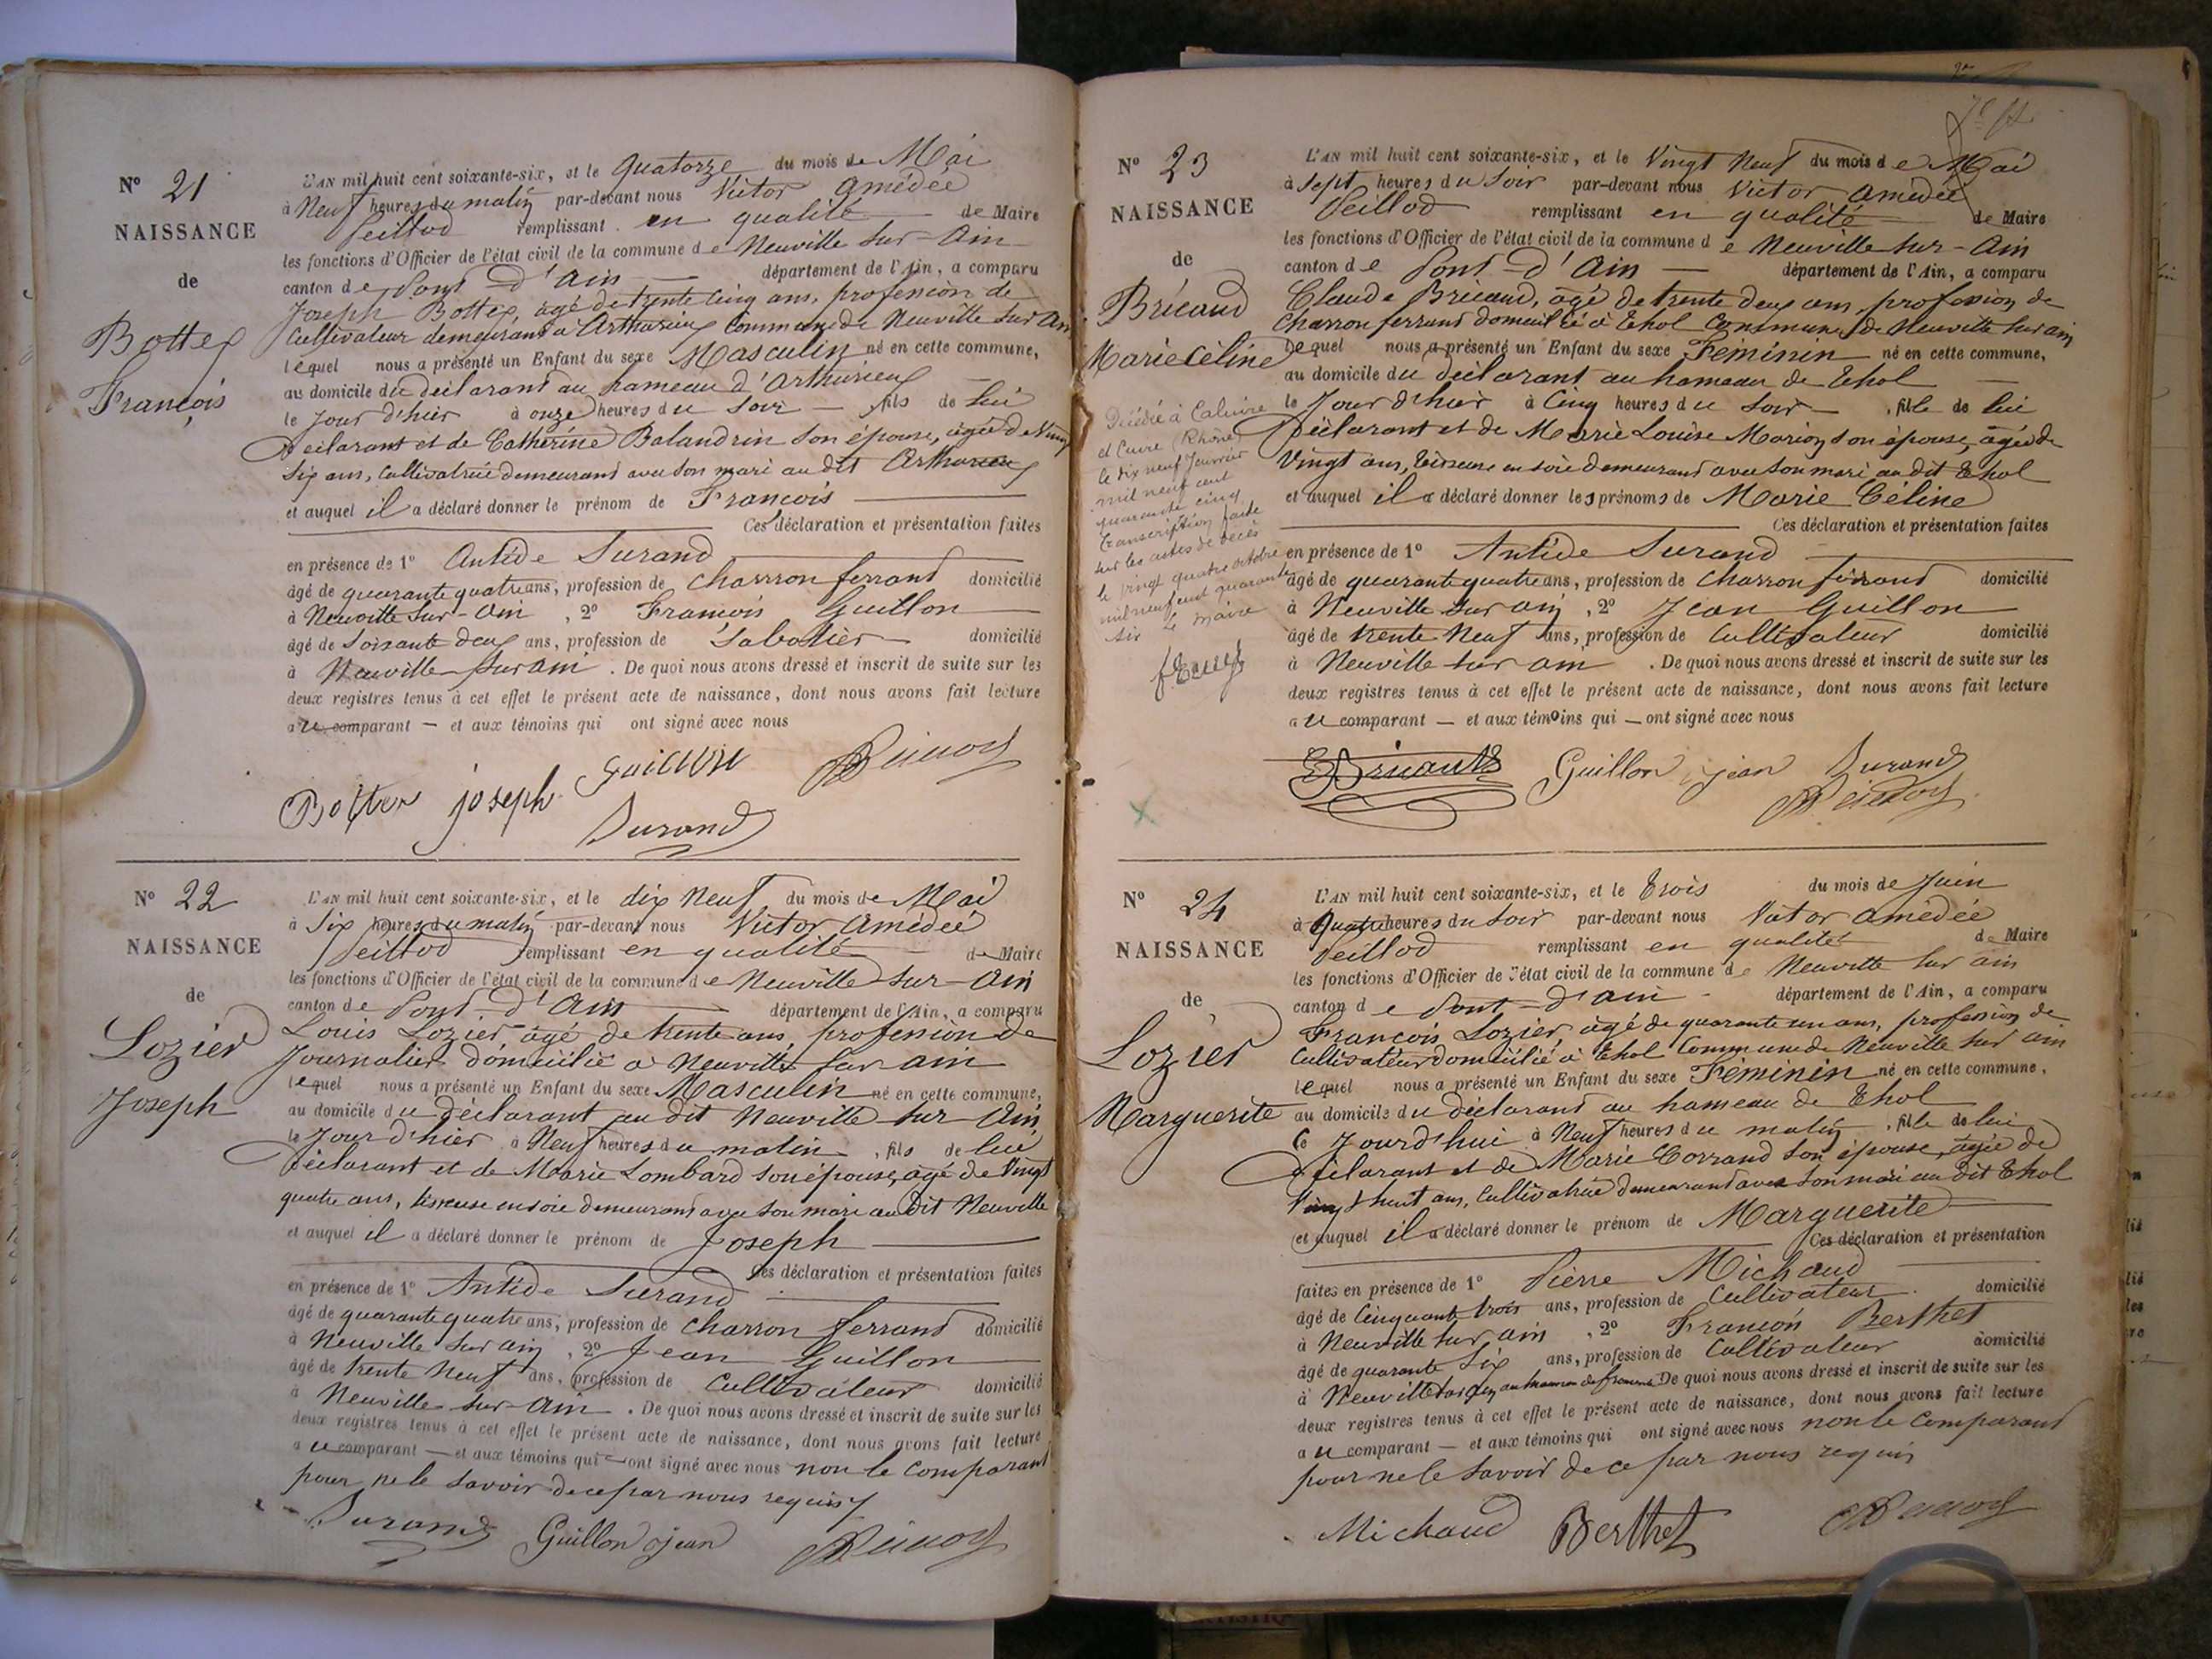 N° 21
NAISSANCE
de
Bottex
François
L'AN mil huit cent soixante-six, et le quatorze du mois de Mai
à Neuf heures du matin par-devant nous Victor Amédée
Peillod remplissant en qualité de Maire
les fonctions d'Officier de l'état civil de la commune de Neuville sur-Ain
canton de Pont-d'Ain département de l'Ain, a comparu
Joseph Bottex, âgé de trente cinq ans, profession de
Cultivateur demeurant à Arthurieux Commune de Neuville sur Ain
lequel nous a présenté un Enfant du sexe Masculin né en cette commune,
au domicile du déclarant au hameau d'Arthurieux
le jour d'hier à onze heures du soir fils de lui
Déclarant et de Catherine Balandrin son épouse, âgée de Vingt
six ans, Cultivatrice demeurant avec son mari au dit Arthurieux
et auquel il a déclaré donner le prénom de François
Ces déclaration et présentation faites
en présence de 1° Antide Durand
âgé de quarante quatre ans, profession de Charron ferrand domicilié
à Neuville sur-Ain, 2° François Guillon
âgé de soixante deux ans, profession de Sabotier domicilié
à Neuville sur ain. De quoi nous avons dressé et inscrit de suite sur les
deux registres tenus à cet effet le présent acte de naissance, dont nous avons fait lecture
au comparant — et aux témoins qui ont signé avec nous
Guillon
Bottex joseph
Durand
N° 22
NAISSANCE
de
Lozier
Joseph
L'AN mil huit cent soixante-six, et le dix Neuf du mois de Mai
à Six heures du matin par-devant nous Victor Amédée
Peillod remplissant en qualité de Maire
les fonctions d'Officier de l'état civil de la commune de Neuville-sur-Ain
canton de Pont-d'Ain département de l'Ain, a comparu
Louis Lozier âgé de trente ans, profession de
Journalier domicilié à Neuville sur ain
lequel nous a présenté un Enfant du sexe Masculin né en cette commune,
au domicile du déclarant au dit Neuville-sur-Ain
le jour d'hier à Neuf heures du matin, fils de lui
Déclarant et de Marie Lombard son épouse, âgé de Vingt
quatre ans, tisseuse en soie demeurant avec son mari au dit Neuville
et auquel il a déclaré donner le prénom de Joseph
Ces déclaration et présentation faites
en présence de 1° Antide Durand
âgé de quarante quatre ans, profession de Charron ferrand domicilié
à Neuville sur ain, 2° Jean Guillon
âgé de trente Neuf ans, profession de Cultivateur domicilié
à Neuville sur-Ain. De quoi nous avons dressé et inscrit de suite sur les
deux registres tenus à cet effet le présent acte de naissance, dont nous avons fait lecture
au comparant — et aux témoins qui — ont signé avec nous non le Comparant
pour ne le savoir de ce par nous requis
Durand Guillon jean
N° 23
NAISSANCE
de
Bricaud
Marie Céline
Décédée à Caluire
et Cuire (Rhône)
le dix neuf Janvier
mil neuf cent
quarante cinq
Transcription faite
sur les actes de décès
le vingt quatre octobre
mil neuf cent quarante
six le maire
L'AN mil huit cent soixante-six, et le Vingt Neuf du mois de Mai
à sept heures du soir par-devant nous Victor Amédée
Peillod remplissant en qualité de Maire
les fonctions d'Officier de l'état civil de la commune de Neuville sur-Ain
canton de Pont-d'Ain département de l'Ain, a comparu
Claude Bricaud, âgé de trente deux ans, profession de
Charron ferrand domicilié à Thol Commune de Neuville sur ain
lequel nous a présenté un Enfant du sexe Féminin né en cette commune,
au domicile du déclarant au hameau de Thol
le Jour d'hier à Cinq heures du soir, fille de lui
Déclarant et de Marie Louise Marion son épouse, âgée de
Vingt ans, tisseuse en soie demeurant avec son mari au dit Thol
et auquel il a déclaré donner les prénoms de Marie Céline
Ces déclaration et présentation faites
en présence de 1° Antide Durand
âgé de quarante quatre ans, profession de Charron ferrand domicilié
à Neuville sur ain, 2° Jean Guillon
âgé de trente Neuf ans, profession de Cultivateur domicilié
à Neuville sur ain. De quoi nous avons dressé et inscrit de suite sur les
deux registres tenus à cet effet le présent acte de naissance, dont nous avons fait lecture
au comparant — et aux témoins qui — ont signé avec nous
Guillon jean Durand
N° 24
NAISSANCE
de
Lozier
Marguerite
L'AN mil huit cent soixante-six, et le trois du mois de Juin
à Quatre heures du soir par-devant nous Victor Amédée
Peillod remplissant en qualité de Maire
les fonctions d'Officier de l'état civil de la commune de Neuville sur ain
canton de Pont-d'ain département de l'Ain, a comparu
François Lozier, âgé de quarante un ans, profession de
Cultivateur domicilié à Thol Commune de Neuville sur ain
lequel nous a présenté un Enfant du sexe Féminin né en cette commune,
au domicile du déclarant au hameau de Thol
Ce Jourd'hui à Neuf heures du matin, fille de lui
Déclarant et de Marie Corrand son épouse, âgée de
Vingt huit ans, Cultivatrice demeurant avec son mari au dit Thol
et auquel il a déclaré donner le prénom de Marguerite
Ces déclaration et présentation
faites en présence de 1° Pierre Michaud
âgé de Cinquante trois ans, profession de Cultivateur domicilié
à Neuville sur ain, 2° François Berthet
âgé de quarante Six ans, profession de Cultivateur domicilié
à Neuville sur ain au hameau de De quoi nous avons dressé et inscrit de suite sur les
deux registres tenus à cet effet le présent acte de naissance, dont nous avons fait lecture
au comparant — et aux témoins qui ont signé avec nous non le Comparant
pour ne le savoir de ce par nous requis
Michaud Berthet